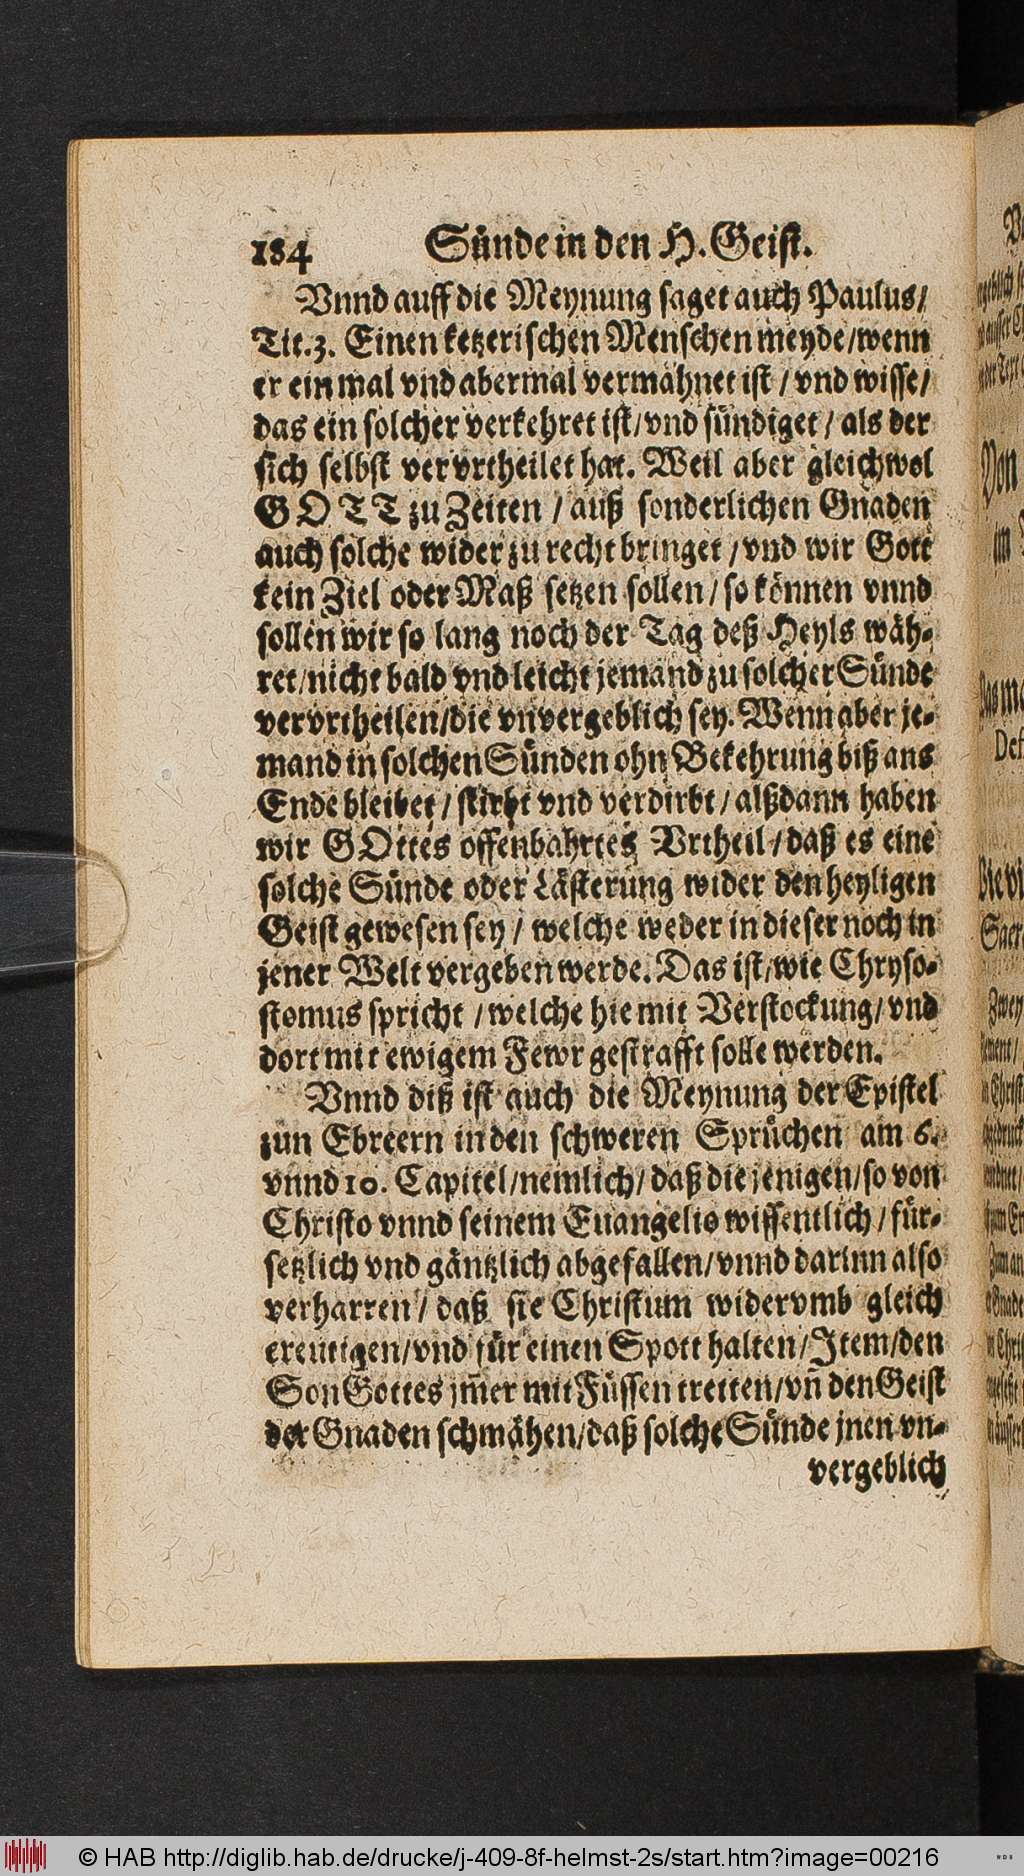 184 Sünde in den H. Geist.
Vnnd auff die Meynung saget auch Paulus/
Tit. 3. Einen ketzerischen Menschen meyde/wenn
er ein mal vnd abermal vermahnet ist / vnd wisse/
das ein solcher verkehret ist/vnd sündiget / als der
sich selbst vervrtheilet hat. Weil aber gleichwol
GOTT zu Zeiten / auß sonderlichen Gnaden
auch solche wider zu recht bringet / vnd wir Gott
kein Ziel oder Maß setzen sollen / so können vnnd
sollen wir so lang noch der Tag deß Heyls wäh-
ret/nicht bald vnd leicht jemand zu solcher Sünde
vervrtheilen/die vnvergeblich sey. Wenn aber je-
mand in solchen Sünden ohn Bekehrung biß ans
Ende bleibet / stirbt vnd verdirbt / alßdann haben
wir GOttes offenbahrtes Vrtheil / daß es eine
solche Sünde oder Lästerung wider den heyligen
Geist gewesen sey / welche weder in dieser noch in
jener Welt vergeben werde. Das ist/wie Chryso-
stomus spricht / welche hie mit Verstockung/ vnd
dort mit ewigem Fewr gestrafft solle werden.
Vnnd diß ist auch die Meynung der Epistel
zun Ebreern in den schweren Sprüchen am 6.
vnnd 10. Capitel/nemlich/ daß die jenigen/so von
Christo vnnd seinem Euangelio wissentlich / für-
setzlich vnd gäntzlich abgefallen/vnnd darinn also
verharren / daß sie Christum widervmb gleich
creutigen/vnd für einen Spott halten/Item/den
Son Gottes jm̃er mit Füssen tretten/vñ den Geist
der Gnaden schmähen/daß solche Sünde jnen vn-
vergeblich
© HAB http://diglib.hab.de/drucke/j-409-8f-helmst-2s/start.htm?image=00216